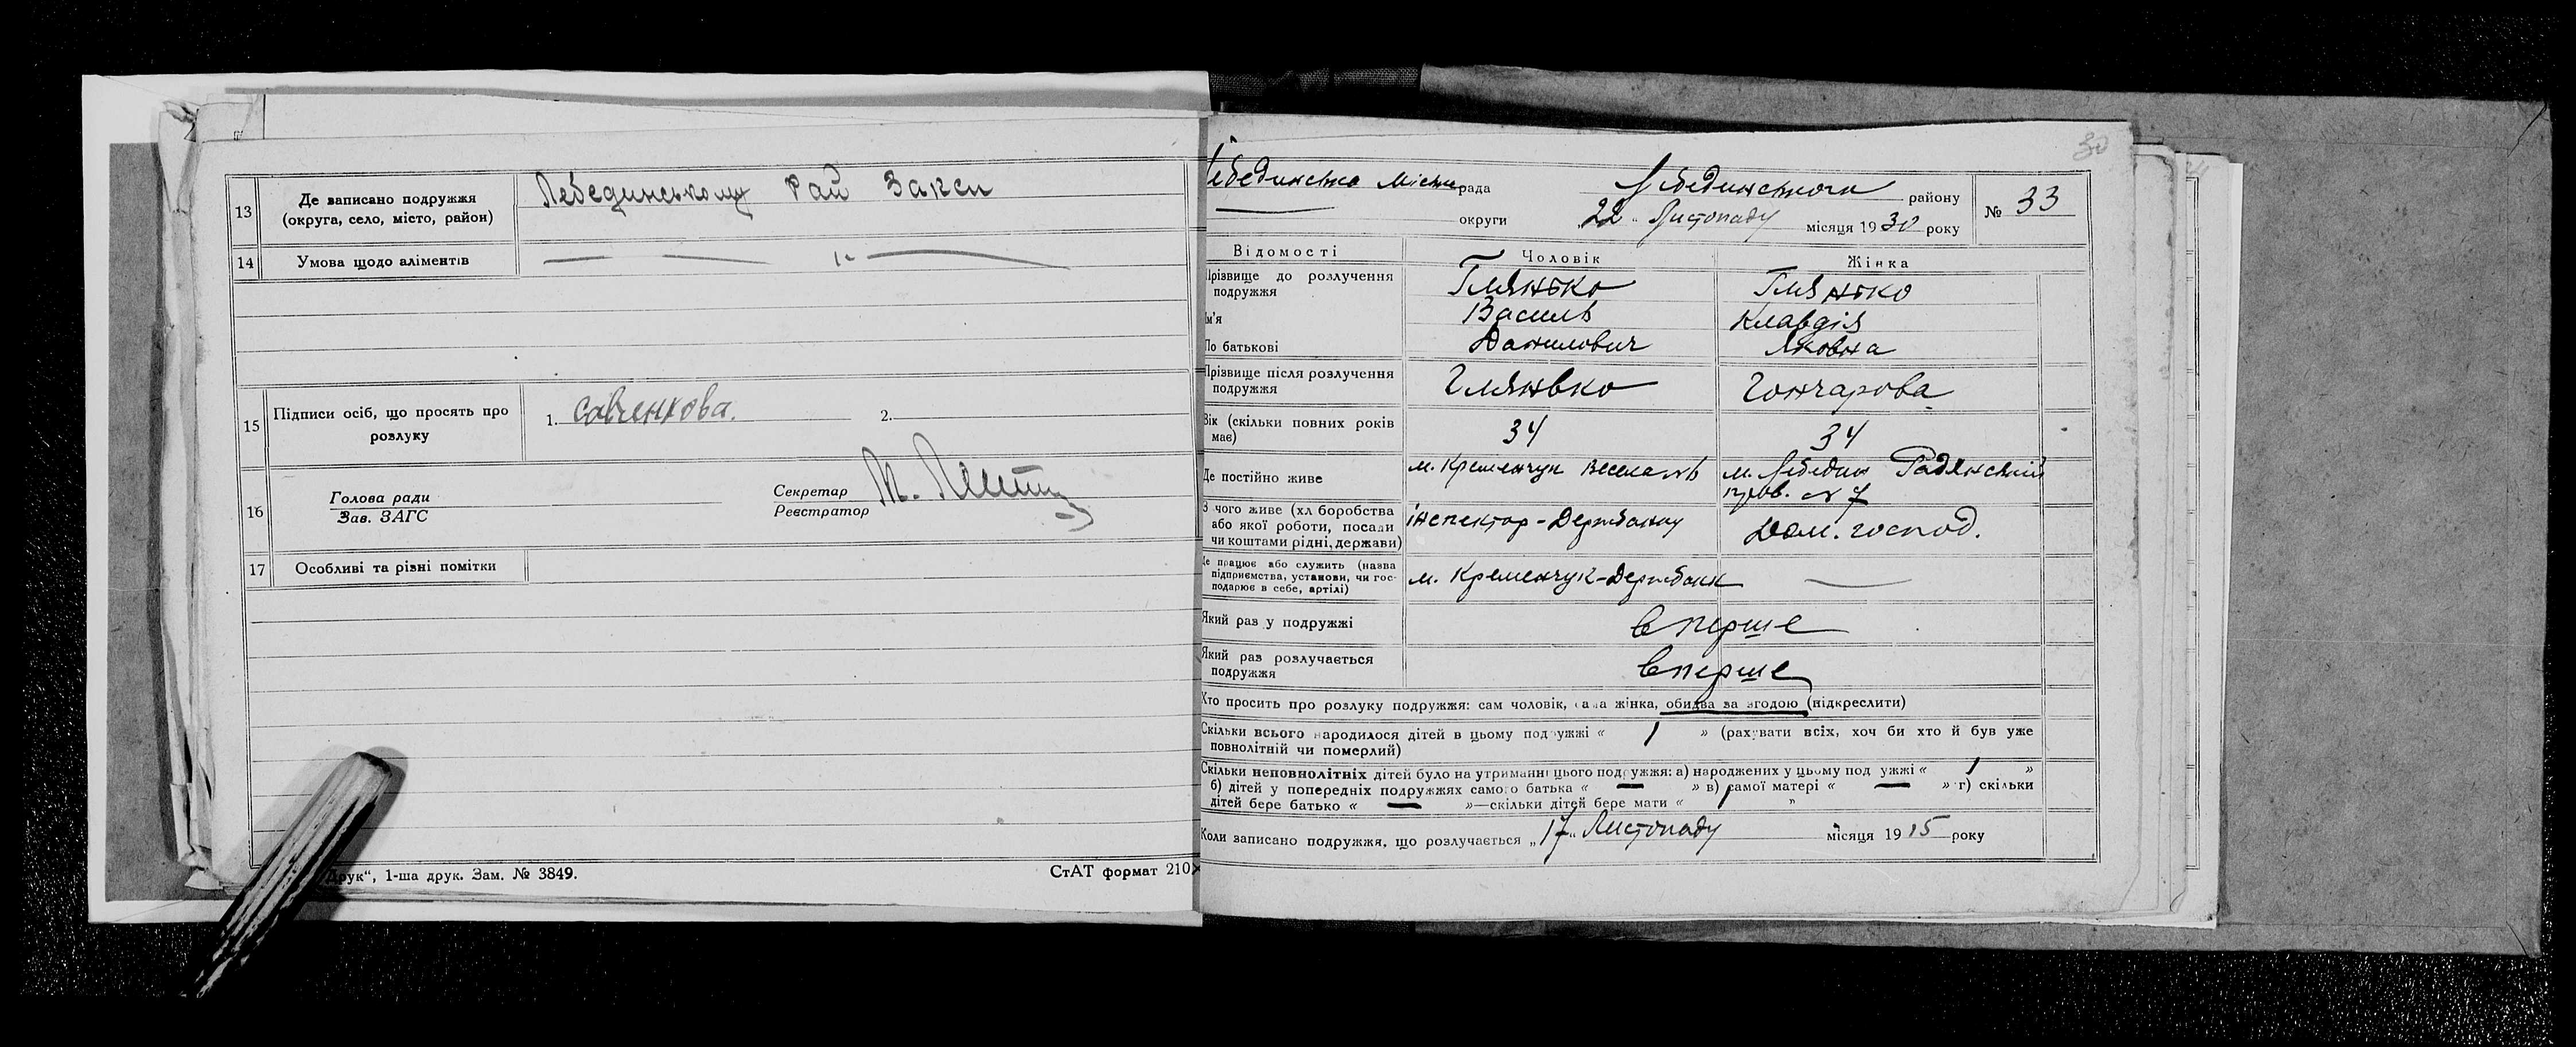 13 Де записано подружжя (округа, село, місто, район) Лебединському Рай Загси
14 Умова щодо аліментів — — " —
15 Підписи осіб, що просять про розлуку 1. Савченкова. 2.
16 Голова ради
Зав. ЗАГС
Секретар
Реєстратор
17 Особливі та різні помітки
Друк“, 1-ша друк. Зам. № 3849.
СтАТ формат 210×
30
Лебединська Міська рада Лебединського району
— округи „22“ Листопаду місяця 1930 року
№ 33
Відомості Чоловік Жінка
Прізвище до розлучення подружжя Глянько Глянько
Ім'я Василь Клавдія
По батькові Данилович Яковна
Прізвище після розлучення подружжя Глянько Гончарова
Вік (скільки повних років має) 34 34
Де постійно живе м. Кременчук м. Лебедин Радянський
пров. № 7
З чого живе (хл боробства або якої роботи, посади чи коштами рідні, держави) інспектор - Держбанку Дом. господ.
Де працює або служить (назва підприємства, установи, чи господарює в себе, артілі) м. Кременчук-Держбанк —
Який раз у подружжі вперше
Який раз розлучається подружжя вперше
Хто просить про розлуку подружжя: сам чоловік, сама жінка, обидва за згодою (підкреслити)
Скільки всього народилося дітей в цьому подружжі « 1 » (рахувати всіх, хоч би хто й був уже
повнолітній чи померлий)
Скільки неповнолітніх дітей було на утриманні цього подружжя: а) народжених у цьому подружжі « 1 »
б) дітей у попередніх подружжях самого батька « — » в) самої матері « — » г) скільки
дітей бере батько « — »—скільки дітей бере мати « 1 »
Коли записано подружжя, що розлучається „17“ Листопаду місяця 1915 року